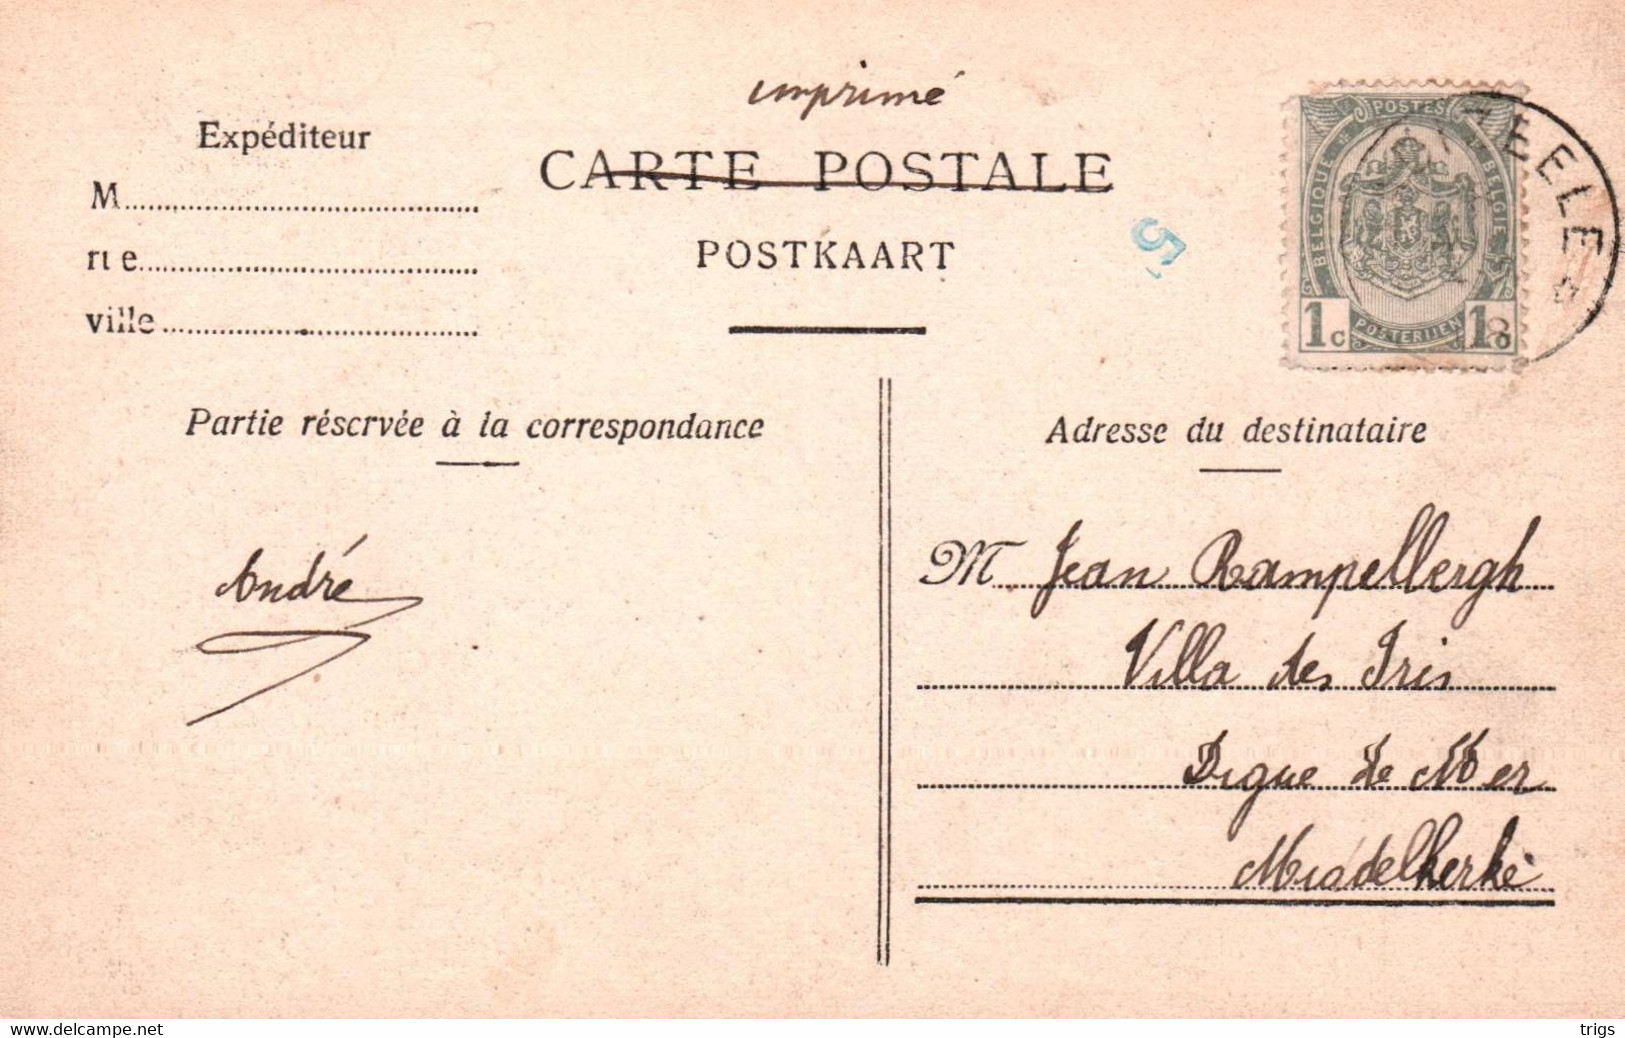 imprimé
CARTE POSTALE
POSTKAART
Expéditeur
M
rue
ville
5
POSTES
BELGIQUE
BELGIE
1c
POSTERIJEN
1
8
Partie réservée à la correspondance
Adresse du destinataire
André
M Jean Rampellergh
Villa des Iris
Digue de Mer
Middelkerke
www.delcampe.net
trigs